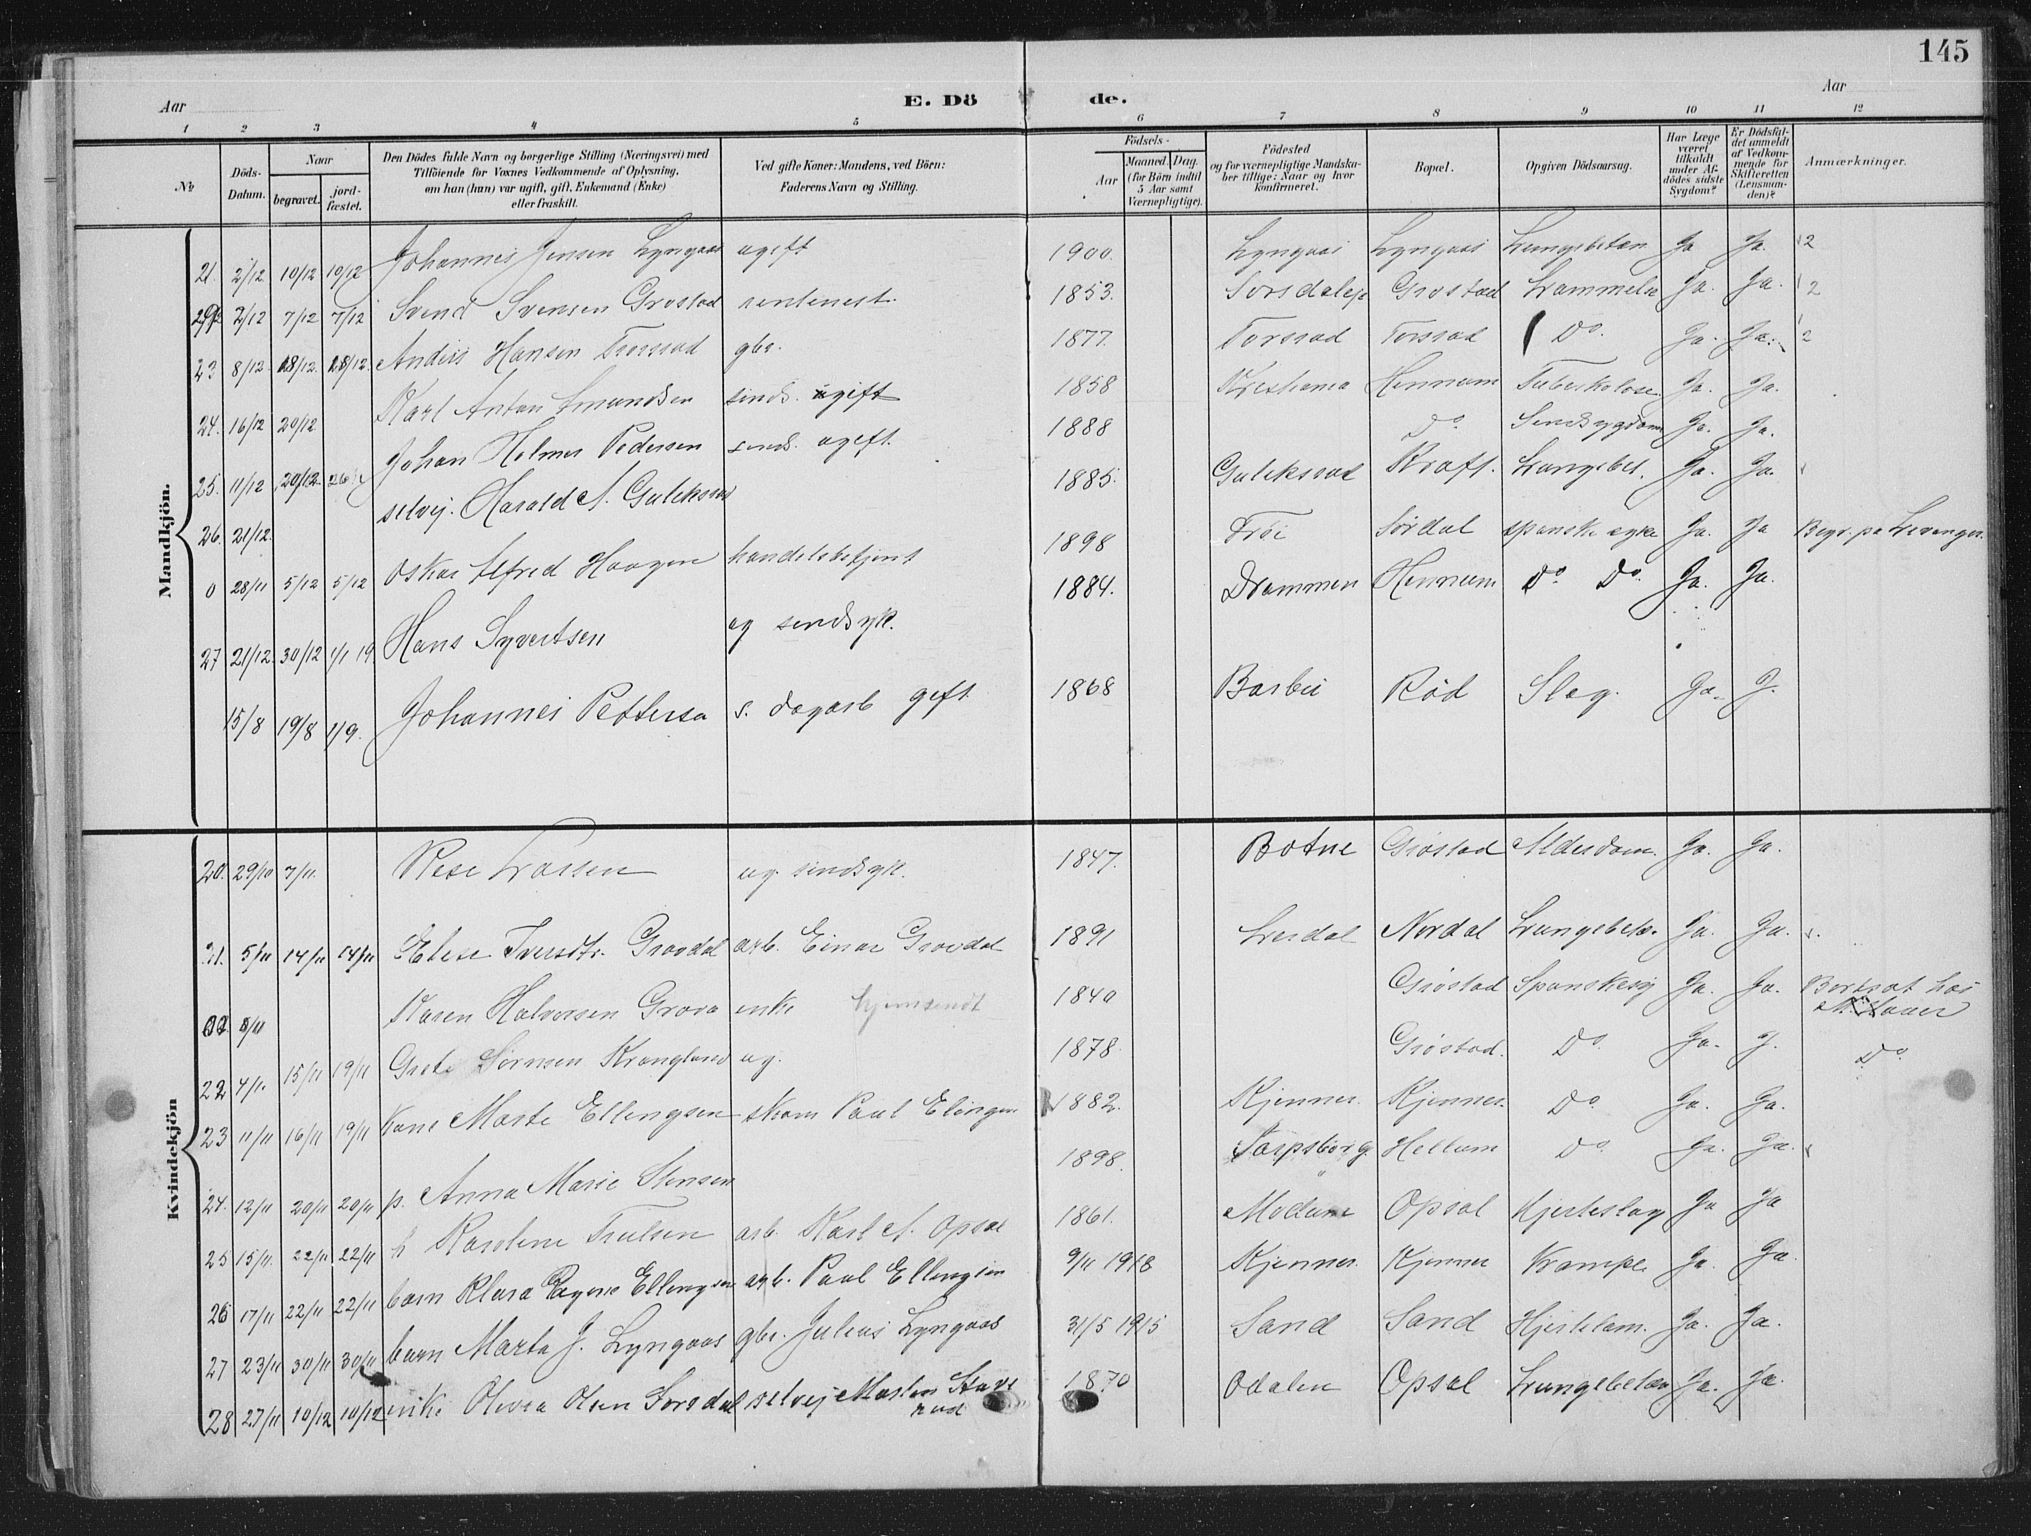 145
Aar
E. Dö
de.
Aar
1 2 3 4 5 6 7 8 9 10 11 12
№
Döds-Datum.
Naar
begravet.
jord-fæstet.
Den Dödes fulde Navn og borgerlige Stilling (Næringsvei) med Tilföiende for Voxnes Vedkommende af Oplysning, om han (hun) var ugift, gift, Enkemand (Enke) eller fraskilt.
Ved gifte Koner: Mandens, ved Börn: Faderens Navn og Stilling.
Födsels-
Aar
Maaned. Dag.
(for Börn indtil 5 Aar samt Værnepligtige).
Födested og for værnepligtige Mandskaber tillige: Naar og hvor konfirmeret.
Bopæl.
Opgiven Dödsaarsag.
Har Læge været tilkaldt under Afdödes sidste Sygdom?
Er Dödsfaldet anmeldt af Vedkommende for Skifteretten (Lensmanden)?
Anmærkninger.
Mandkjön.
21. 2/12 10/12 10/12 Johannes Jensen Lyngaas ugift 1900. Lyngaas Lyngaas Lungebetæn Ja Ja 12
7/12 7/12 7/12 Svend Svensen Grøstad 1853. Grøstad Ja. Ja. 12
23 8/12 18/12 18/12. Anders Hansen gbr. 1877. Do. Ja. Ja. 12
24. 16/12 20/12 Karl Anton Amundsen sinds. ugift 1858 Kristiania Hennum Tuberkulose Ja. Ja.
25. 11/12 20/12 Johan Helmer Pedersen sinds. ugift. 1888 Do. Sindsygdom Ja. Ja.
26. 21/12. selvej. Harald A. Guleksrud 1885. Guleksrud Kraft. Lungebet. Ja. Ja.
0 28/11 5/12 5/12 Oskar Alfred Haagen handelsbetjent 1898 Sørdal spanske syke Ja. Ja Begr. på Levanger.
27 21/12. 30/12 1/1 19 Hans Syvertsen ug sindsyk. 1884. Drammen Hennum Do Do. Ja. Ja.
15/8 19/8 1/9. Johannes Petterse s. dagarb gift 1868 Barbu Rød Slag. Ja. J.
Kvindekjön
20. 29/10 7/11. Larsen ug. sindsyk. 1847. Botne Grøstad Alderdom. Ja. Ja.
21. 5/11 14/11 14/11 Elise Iversdtr. Grovdal arb. Einar Grovdal 1891 Nordal Lungebetæ. Ja. Ja.
8/11 Karen Halvorsen Grova enke hjemsendt 1840 Grøstad Spanskesy Ja. Ja. Bortsat hos
22 4/11. 15/11 19/11 Grete Sørnsen Krangland ug. 1878. Grøstad. Do. Ja. J. Do.
23 11/11 16/11 19/11 Kone Marte Ellengsen skom Paul Elingsen 1882. Kjenner. Kjenner. Do. Ja. Ja.
24. 12/11 20/11 20/11 p. Anna Marie Stensen 1898. Sarpsborg. Hellum Do Ja. Ja.
25 15/11. 22/11 22/11 h Karoline Trulsen arb. Karl A. Opsal 1861. Modum Opsal Hjerteslag Ja Ja
26 17/11 22/11 22/11 barn Klara Ragna Ellengsen arb. Paul Ellengsen 9/11 1918 Kjenner. Kjenner Krampe. Ja. Ja.
27 23/11 30/11 30/11 barn Marta J. Lyngaas gbr. Julius Lyngaas 31/5 1915 Sand Sand Hjertelam. Ja. Ja.
28 27/11 10/12 10/12 enke Olivia Olsen Sørsdal selvej 1870 Odalen Opsal Lungebetæn Ja. Ja.